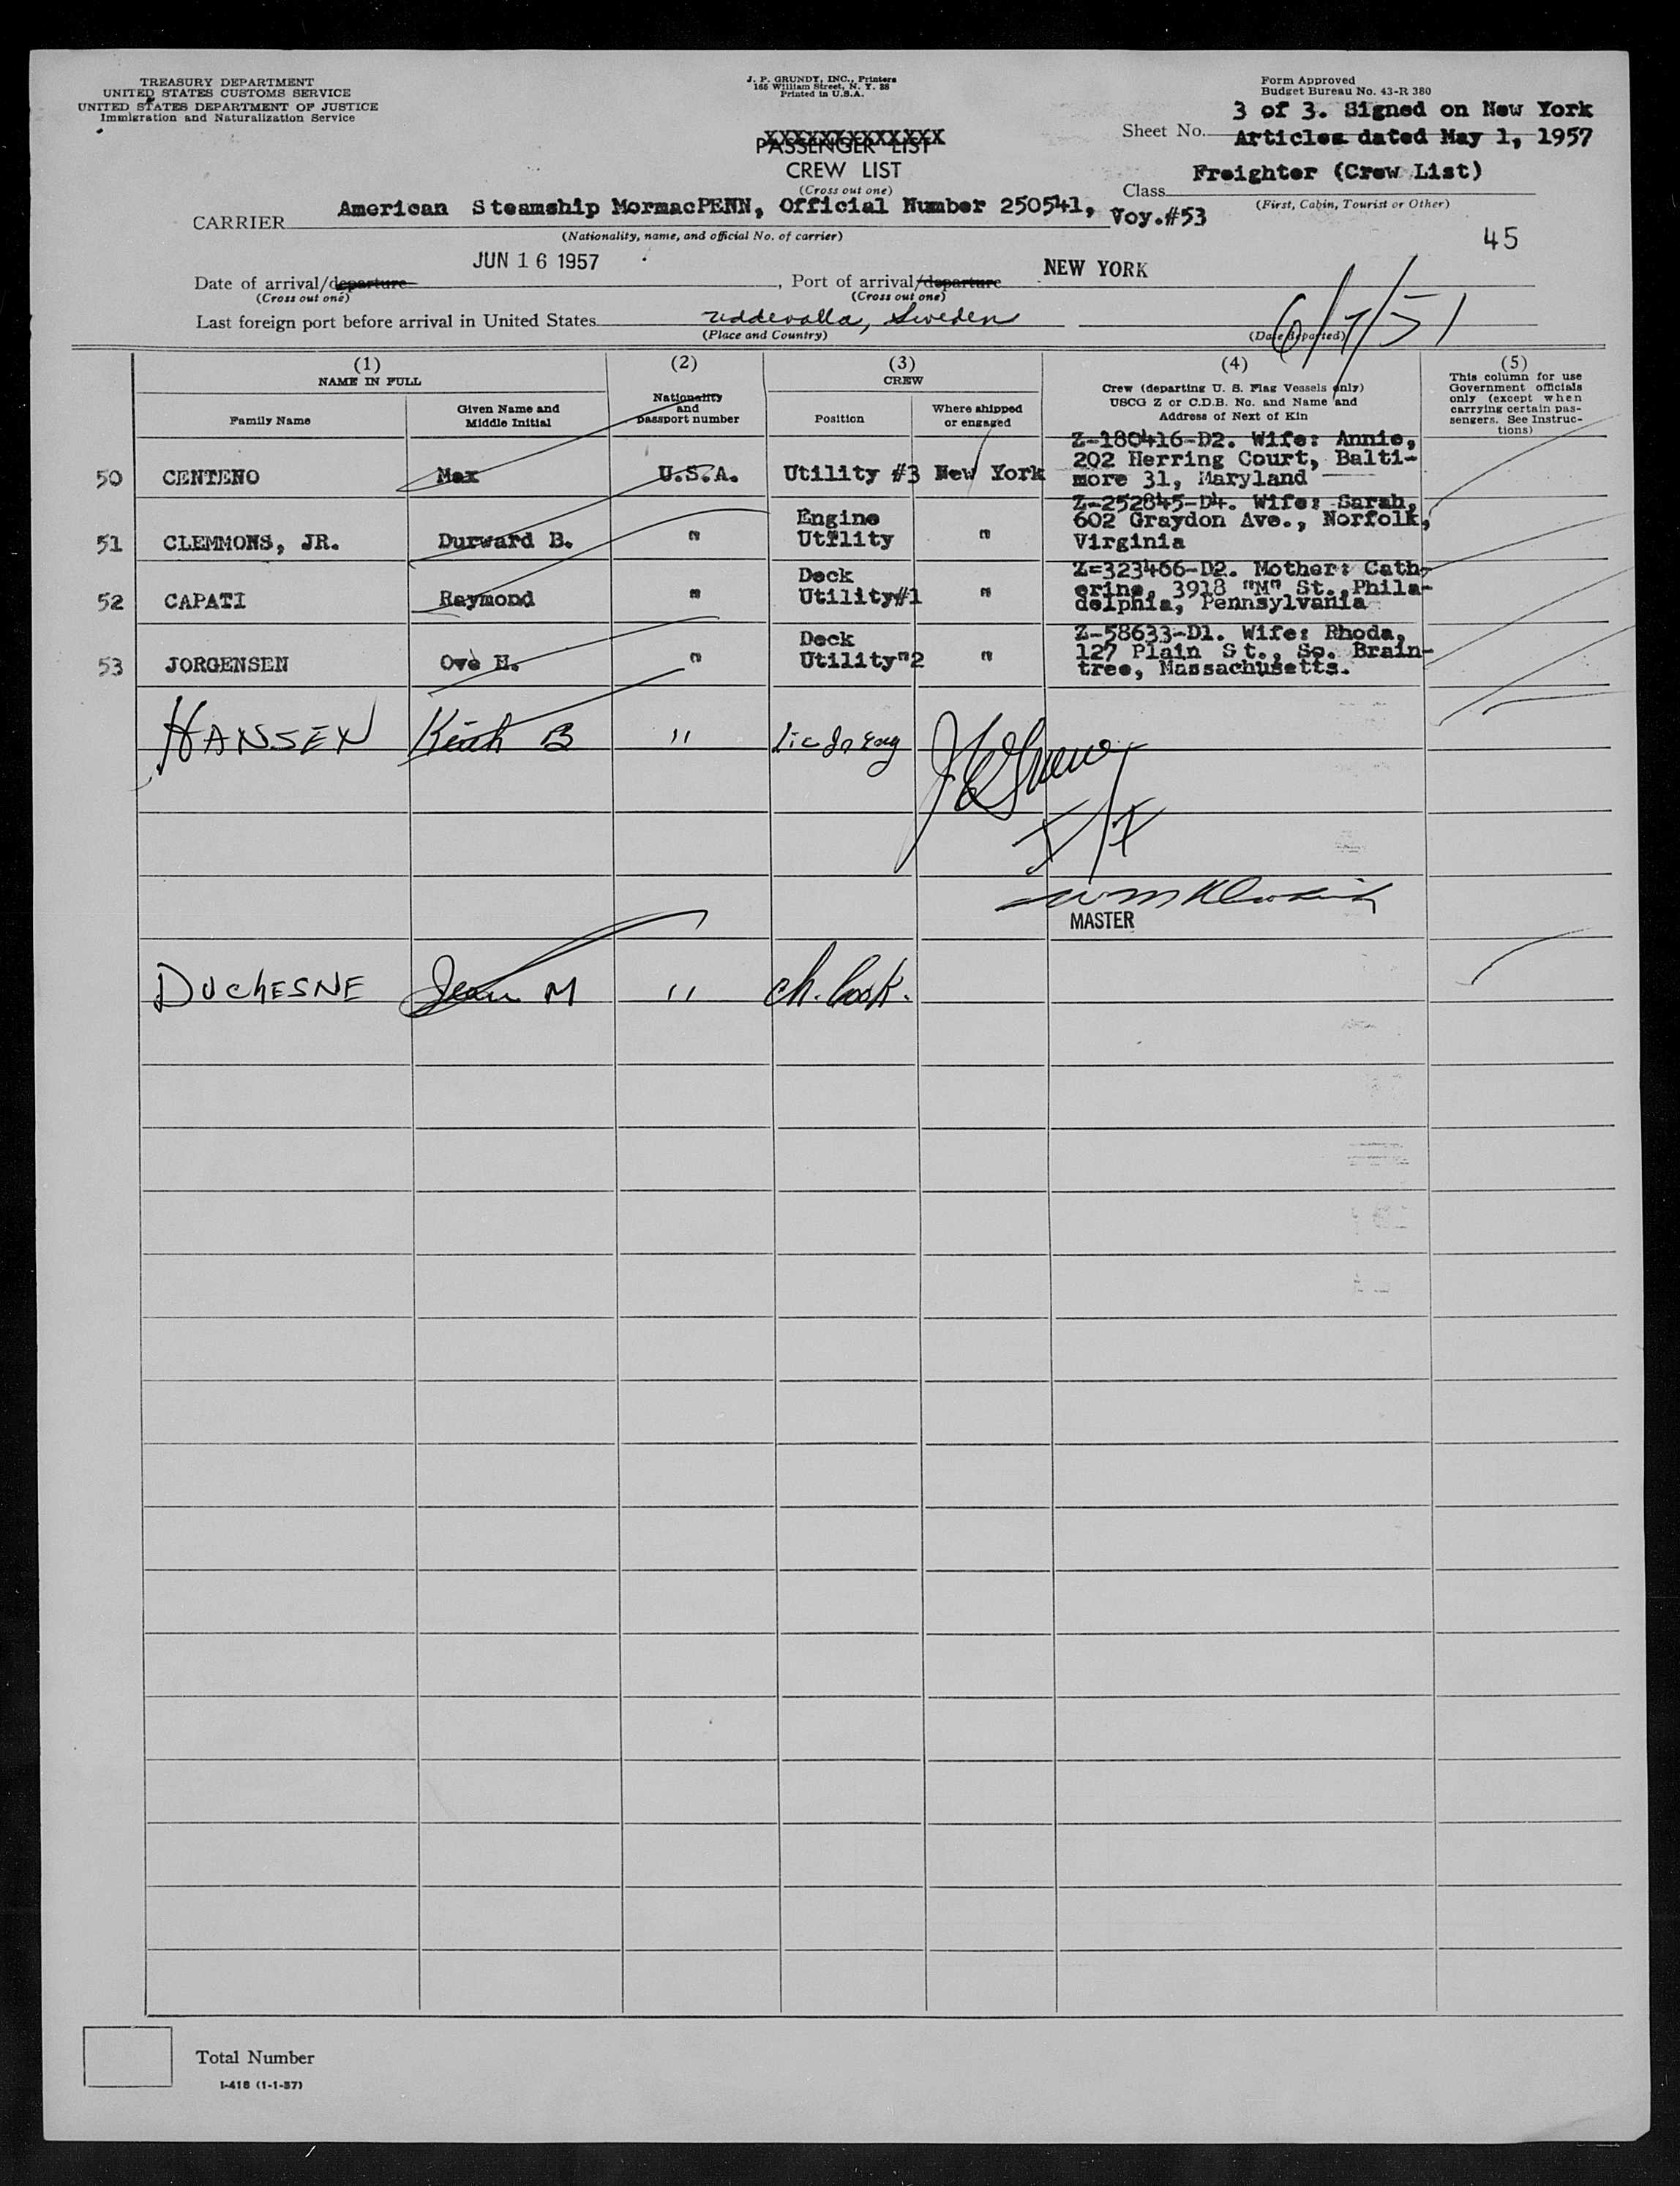 TREASURY DEPARTMENT
UNITED STATES CUSTOMS SERVICE
UNITED STATES DEPARTMENT OF JUSTICE
Immigration and Naturalization Service
J. P. GRUNDY, INC., Printers
165 William Street, N. Y. 38
Printed in U.S.A.
Form Approved
Budget Bureau No. 43-R 380
3 of 3. Signed on New York
Sheet No. Articles dated May 1, 1957
XXXXXXXXXXXXXX
PASSENGER LIST
CREW LIST
(Cross out one)
Freighter (Crew List)
Class
(First, Cabin, Tourist or Other)
CARRIER American Steamship MormacPENN, Official Number 250541, Voy.#53
(Nationality, name, and official No. of carrier)
45
JUN 16 1957
NEW YORK
Date of arrival/departure , Port of arrival/departure
(Cross out one) (Cross out one)
Last foreign port before arrival in United States Uddevalla, Sweden
(Place and Country) (Date departed)
(1) (2) (3) (4) (5)
NAME IN FULL
Family Name
Given Name and
Middle Initial
Nationality
and
passport number
CREW
Position
Where shipped
or engaged
Crew (departing U. S. Flag Vessels only)
USCG Z or C.D.B. No. and Name and
Address of Next of Kin
This column for use
Government officials
only (except when
carrying certain pas-
sengers. See Instruc-
tions)
50 CENTENO Max U.S.A. Utility #3 New York
Z-180416-D2. Wife: Annie,
202 Herring Court, Balti-
more 31, Maryland
51 CLEMMONS, JR. Durward B. " Engine
Utility "
Z-252845-D4. Wife: Sarah,
602 Graydon Ave., Norfolk,
Virginia
52 CAPATI Raymond " Deck
Utility#1 "
Z=323466-D2. Mother: Cath-
erine, 3918 "M" St. Phila-
delphia, Pennsylvania
53 JORGENSEN Ove H. " Deck
Utility"2 "
Z-58633-D1. Wife: Rhoda,
127 Plain St., So. Brain-
tree, Massachusetts.
HANSEN Keith B " Lic Jr Eng
MASTER
DUCHESNE Jean M " Ch. Cook.
Total Number
I-418 (1-1-57)